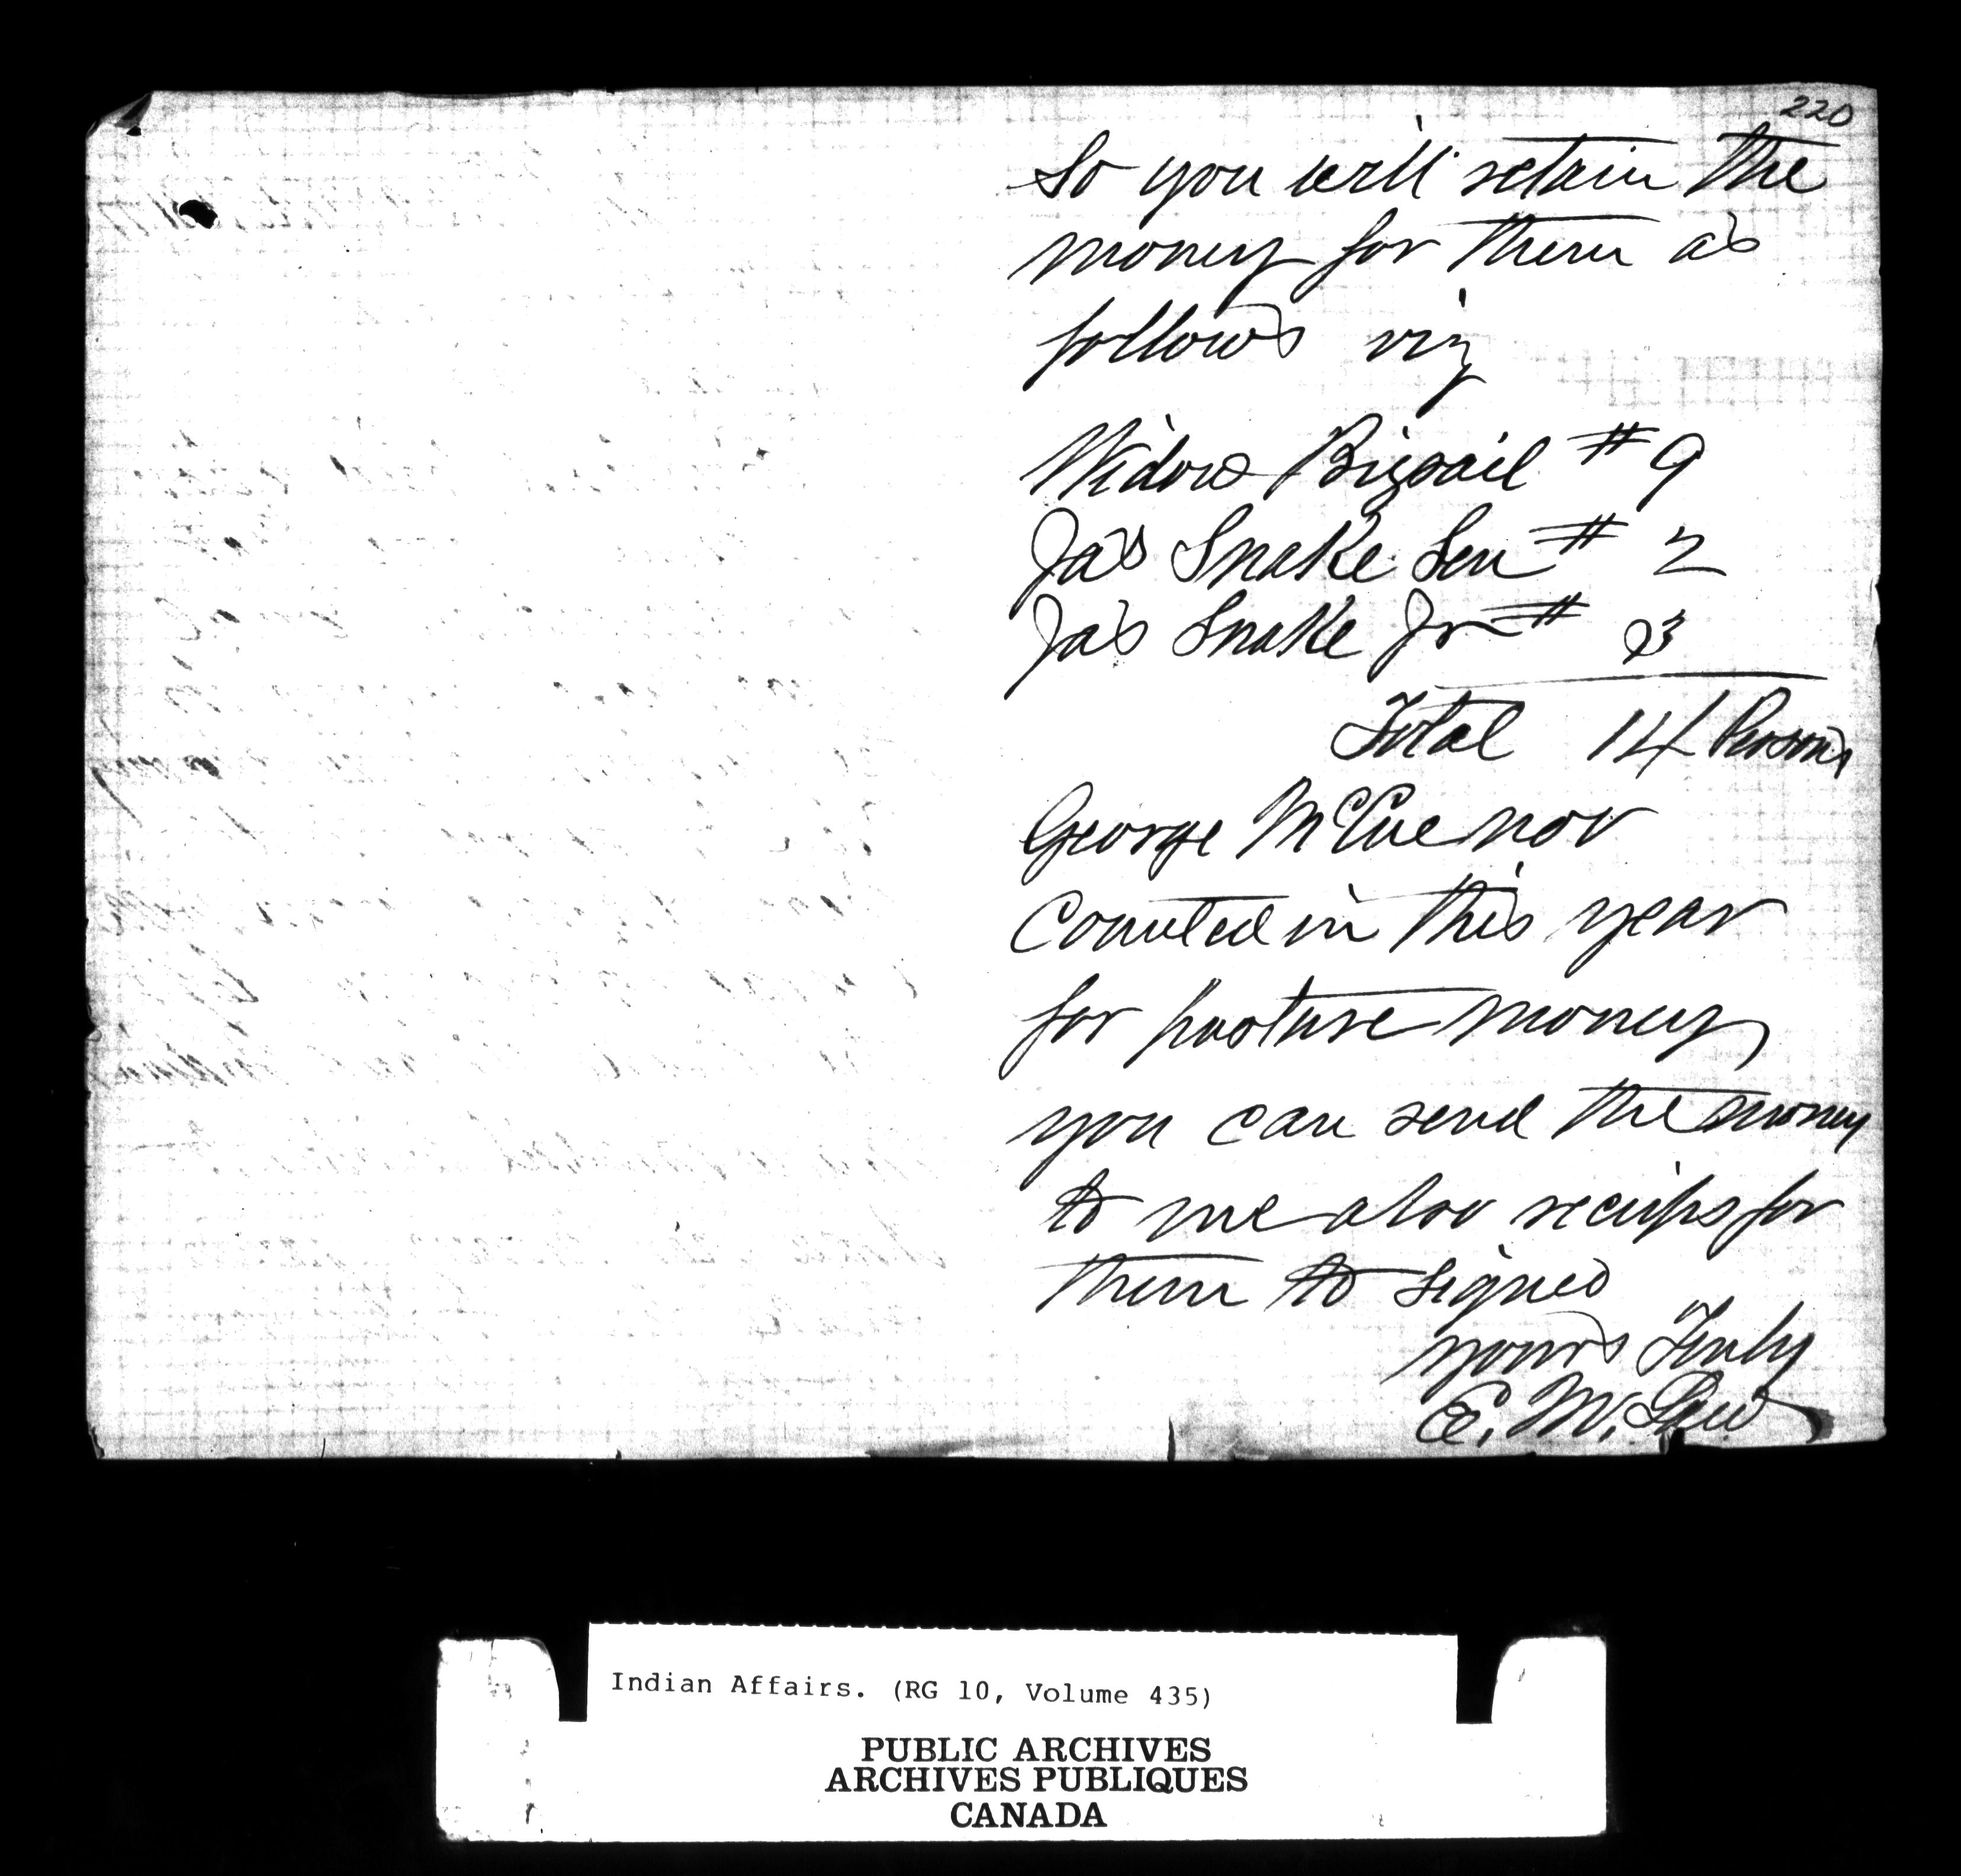 220
So you will retain the
money for them as
follows viz
Widow Bigsail # 9
Jas Snake Sen # 2
Jas Snake Jr # 3
Total 14 Persons
George McCue nor
Counted in this year
for pasture money
you can send the money
to me also recieps for
them to signed
yours Truly
E. M.
Indian Affairs. (RG 10, Volume 435)
PUBLIC ARCHIVES
ARCHIVES PUBLIQUES
CANADA